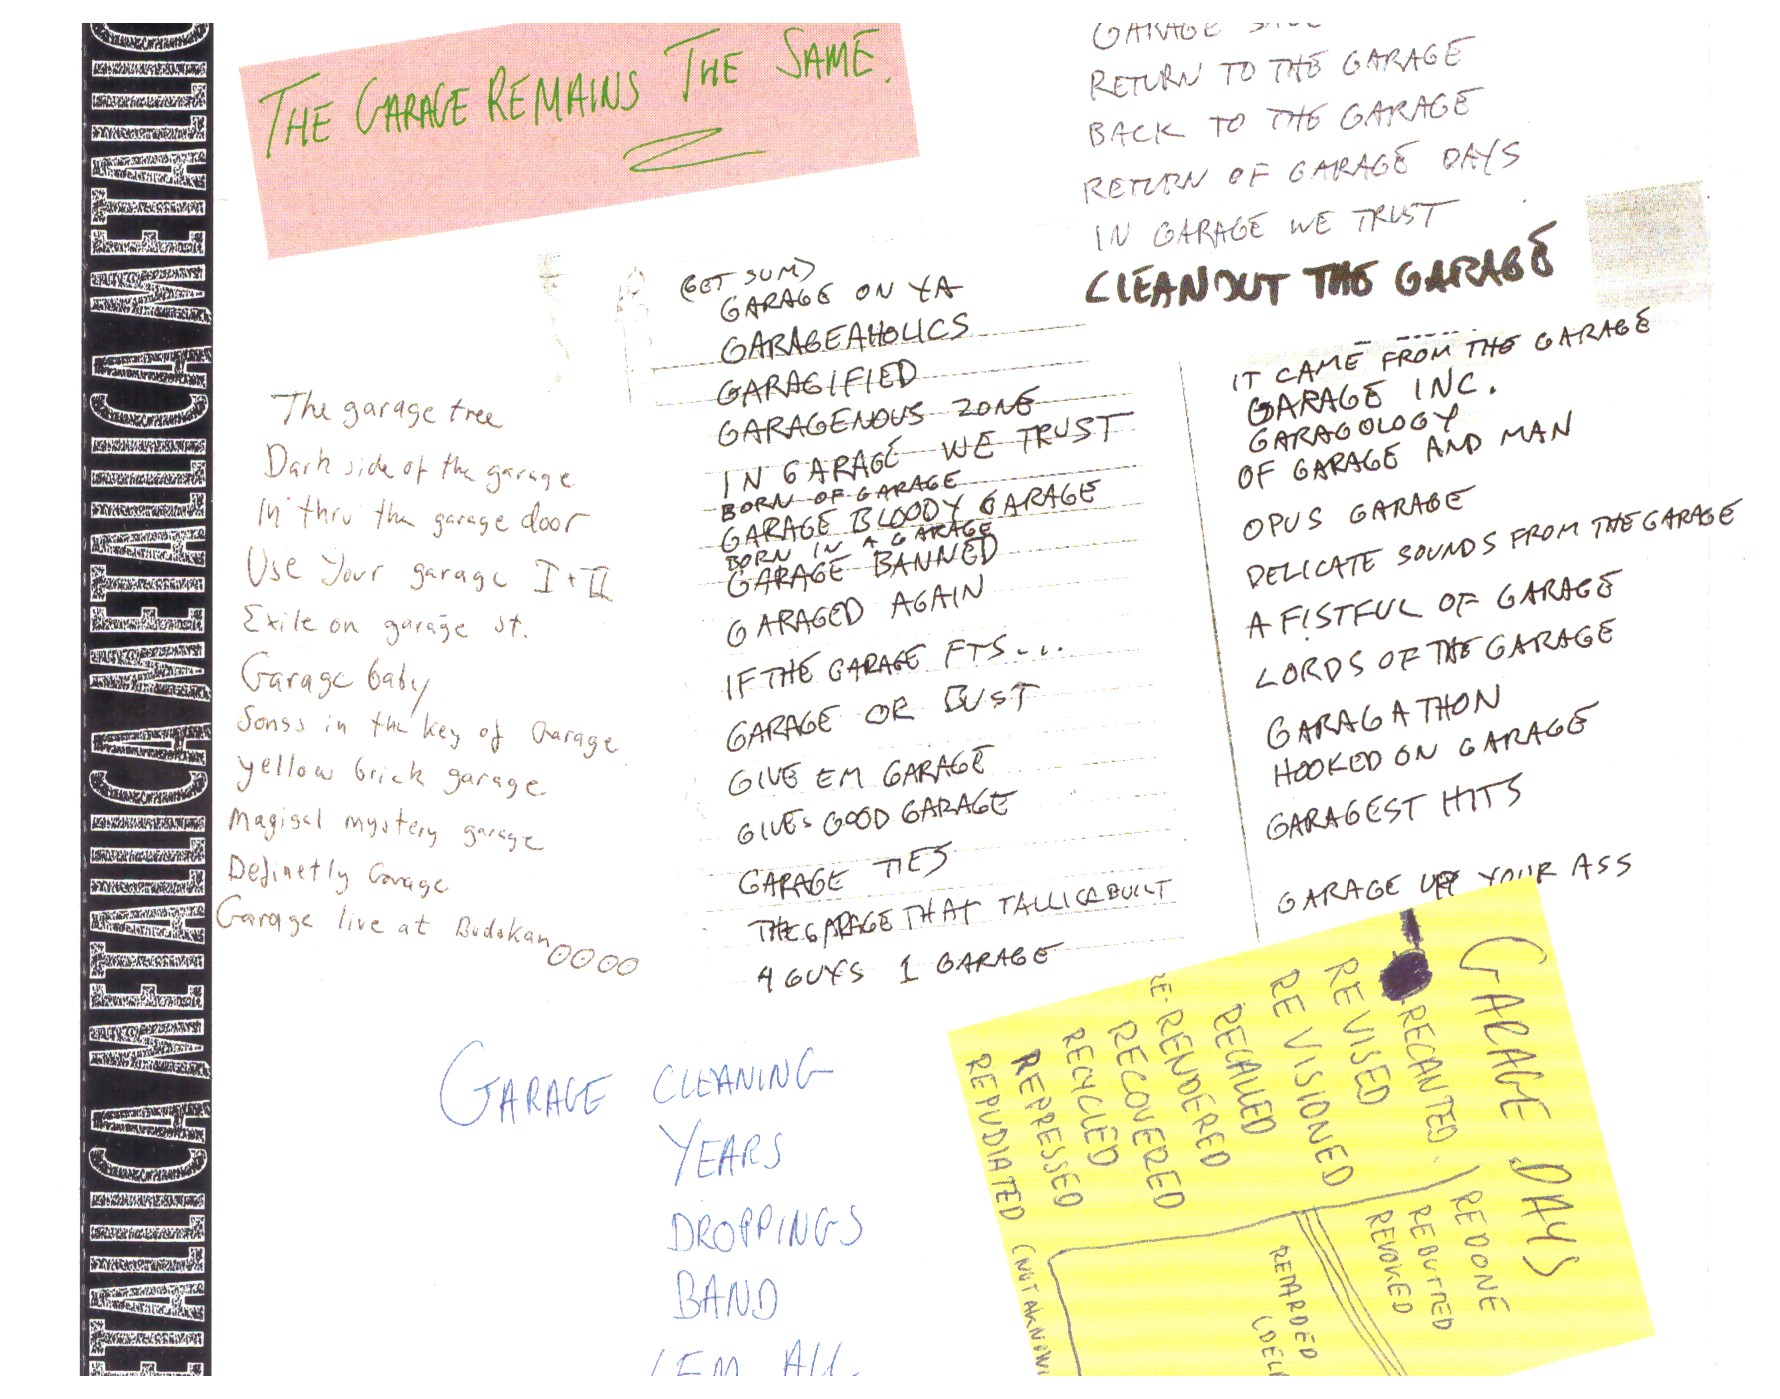 METALLICA METALLICA METALLICA METALLICA
THE GARAGE REMAINS THE SAME.
GARAGE
RETURN TO THE GARAGE
BACK TO THE GARAGE
RETURN OF GARAGE DAYS
IN GARAGE WE TRUST
CLEANOUT THE GARAGE
The garage tree
Dark side of the garage
In thru the garage door
Use Your garage I + II
Exile on garage st.
Garage baby
Songs in the key of Garage
yellow brick garage
Magical mystery garage
Definetly Garage
Garage live at Budokan
(GET SUM)
GARAGE ON YA
GARAGEAHOLICS
GARAGIFIED
GARAGENOUS ZONE
IN GARAGE WE TRUST
BORN OF GARAGE
GARAGE BLOODY GARAGE
BORN IN A GARAGE
GARAGE BANNED
GARAGED AGAIN
IF THE GARAGE FTS...
GARAGE OR BUST
GIVE EM GARAGE
GIVES GOOD GARAGE
GARAGE TIES
THE GARAGE THAT TALLICA BUILT
4 GUYS 1 GARAGE
IT CAME FROM THE GARAGE
GARAGE INC.
GARAGOLOGY
OF GARAGE AND MAN
OPUS GARAGE
DELICATE SOUNDS FROM THE GARAGE
A FISTFUL OF GARAGE
LORDS OF THE GARAGE
GARAGATHON
HOOKED ON GARAGE
GARAGEST HITS
GARAGE UP YOUR ASS
GARAGE CLEANING
YEARS
DROPPINGS
BAND
'EM ALL
GARAGE DAYS
RECANTED.) REDONE
REVISED REBUTTED
RE VISIONED REVOKED
RECALLED
RE-RENDERED
RECOVERED
RECYCLED
REPRESSED
REPUDIATED
RETARDED